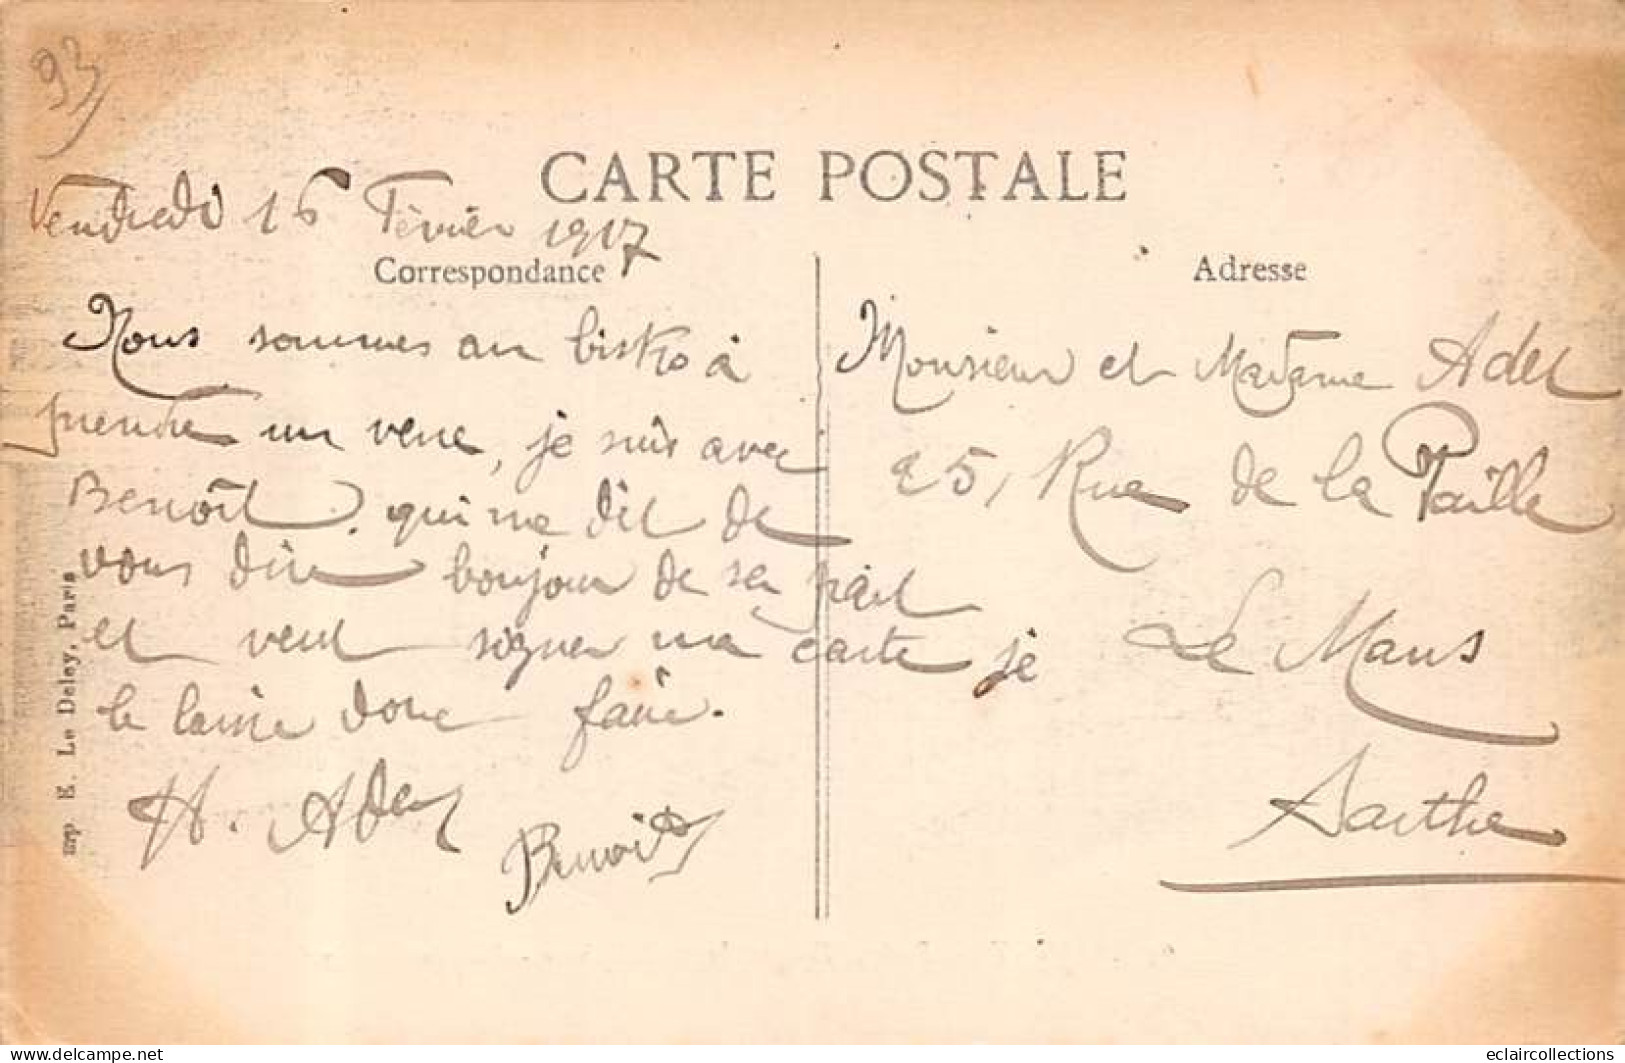 93
CARTE POSTALE
Vendredi 16 Février 1917
Correspondance
Nous sommes au bistro à
prendre un verre, je suis avec
Benoît, qui me dit de
vous dire bonjour de sa part
et veut signer ma carte je
le laisse donc faire.
H. Adet
Benoit
Adresse
Monsieur et Madame Adet
25, Rue de la Paille
Le Mans
Sarthe
Imp. E. Le Deley, Paris
www.delcampe.net
eclaircollections